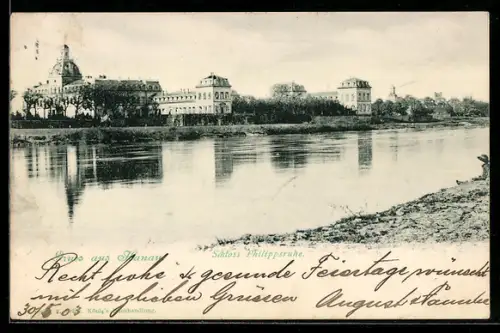 Gruss aus Hanau
Schloss Philippsruhe.
Recht frohe & gesunde Feiertage wünscht
mit herzlichen Grüssen August & Tantchen
30/5 03
König's